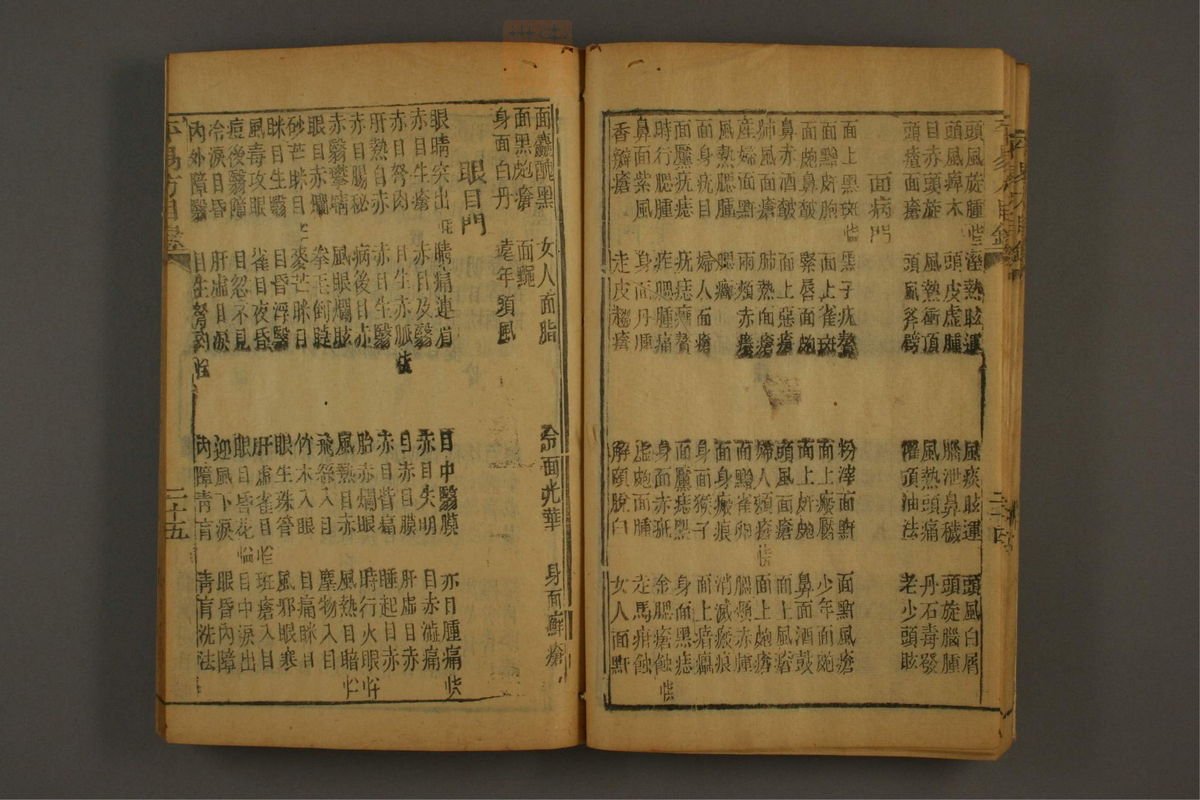 頭風旋腫 溼熱眩運 風痰眩運 頭風白屑
頭風痺木 頭皮虛腫 腦泄鼻穢 頭旋腦腫
目赤頭旋 風熱衝頂 風熱頭痛 丹石毒發
頭瘡面瘡 頭風斧劈 灌頂油法 老少頭眩
面病門
面上黑斑 黑子疣贅 粉滓面䵟 面䵟風瘡
面黯皮皰 面上雀斑 面上癜黶 少年面皰
鼻赤酒皶 緊唇面皰 面上皯皰 鼻面酒皶
肺風面瘡 面上惡瘡 頭風面瘡 面上風瘡
產婦面 肺熱面瘡 婦人頭瘡 面上皰瘡
風熱面腫 兩頰赤瘡 面黯雀卵 腮頰赤腫
面身疣目 腮 面身瘢痕 消滅瘢痕
面黶疣痣 婦人面瘡 身面猴子 面上瘡
時行腮腫 疣痣贅 面黶痣黑 身面黑痣
鼻面紫風 痄腮腫痛 身面赤斑 金腮瘡蝕
香瓣瘡 身面丹腫 虛皰面腫 走馬疳蝕
走皮瘡 解頤脫臼 女人面䵟
二十四
面黑 女人面脂 令面光華 身面癬瘡
面黑皰瘡 面
身面白丹 老年頭風
眼目門
眼睛突出 睛痛連眉 目中翳膜 赤目腫痛
赤目生瘡 赤目及翳 赤目失明 目赤澁痛
赤目努肉 目生赤脈 目赤目膜 肝虛目赤
肝熱目赤 赤目生翳 赤目眥痛 睡起目赤
赤目腸秘 病後目赤 胎赤爛眼 時行火眼
赤翳攀睛 風眼爛眩 風熱目赤 風熱目暗
眼目赤爛 拳毛倒睫 飛絲入目 塵物入目
砂芒眯目 麥芒眯目 竹木入眼 目痛眯目
眯目生翳 目昏浮翳 眼生珠管 風邪眼寒
風毒攻眼 雀目夜昏 肝虛雀目 斑瘡入目
痘後翳障 目忽不見 眼目昏花 目中淚出
冷淚目昏 肝虛目淚 迎風下淚 眼昏內障
內外障翳 目生胬肉 內障青盲 青盲洗法
平易方目錄
二十五